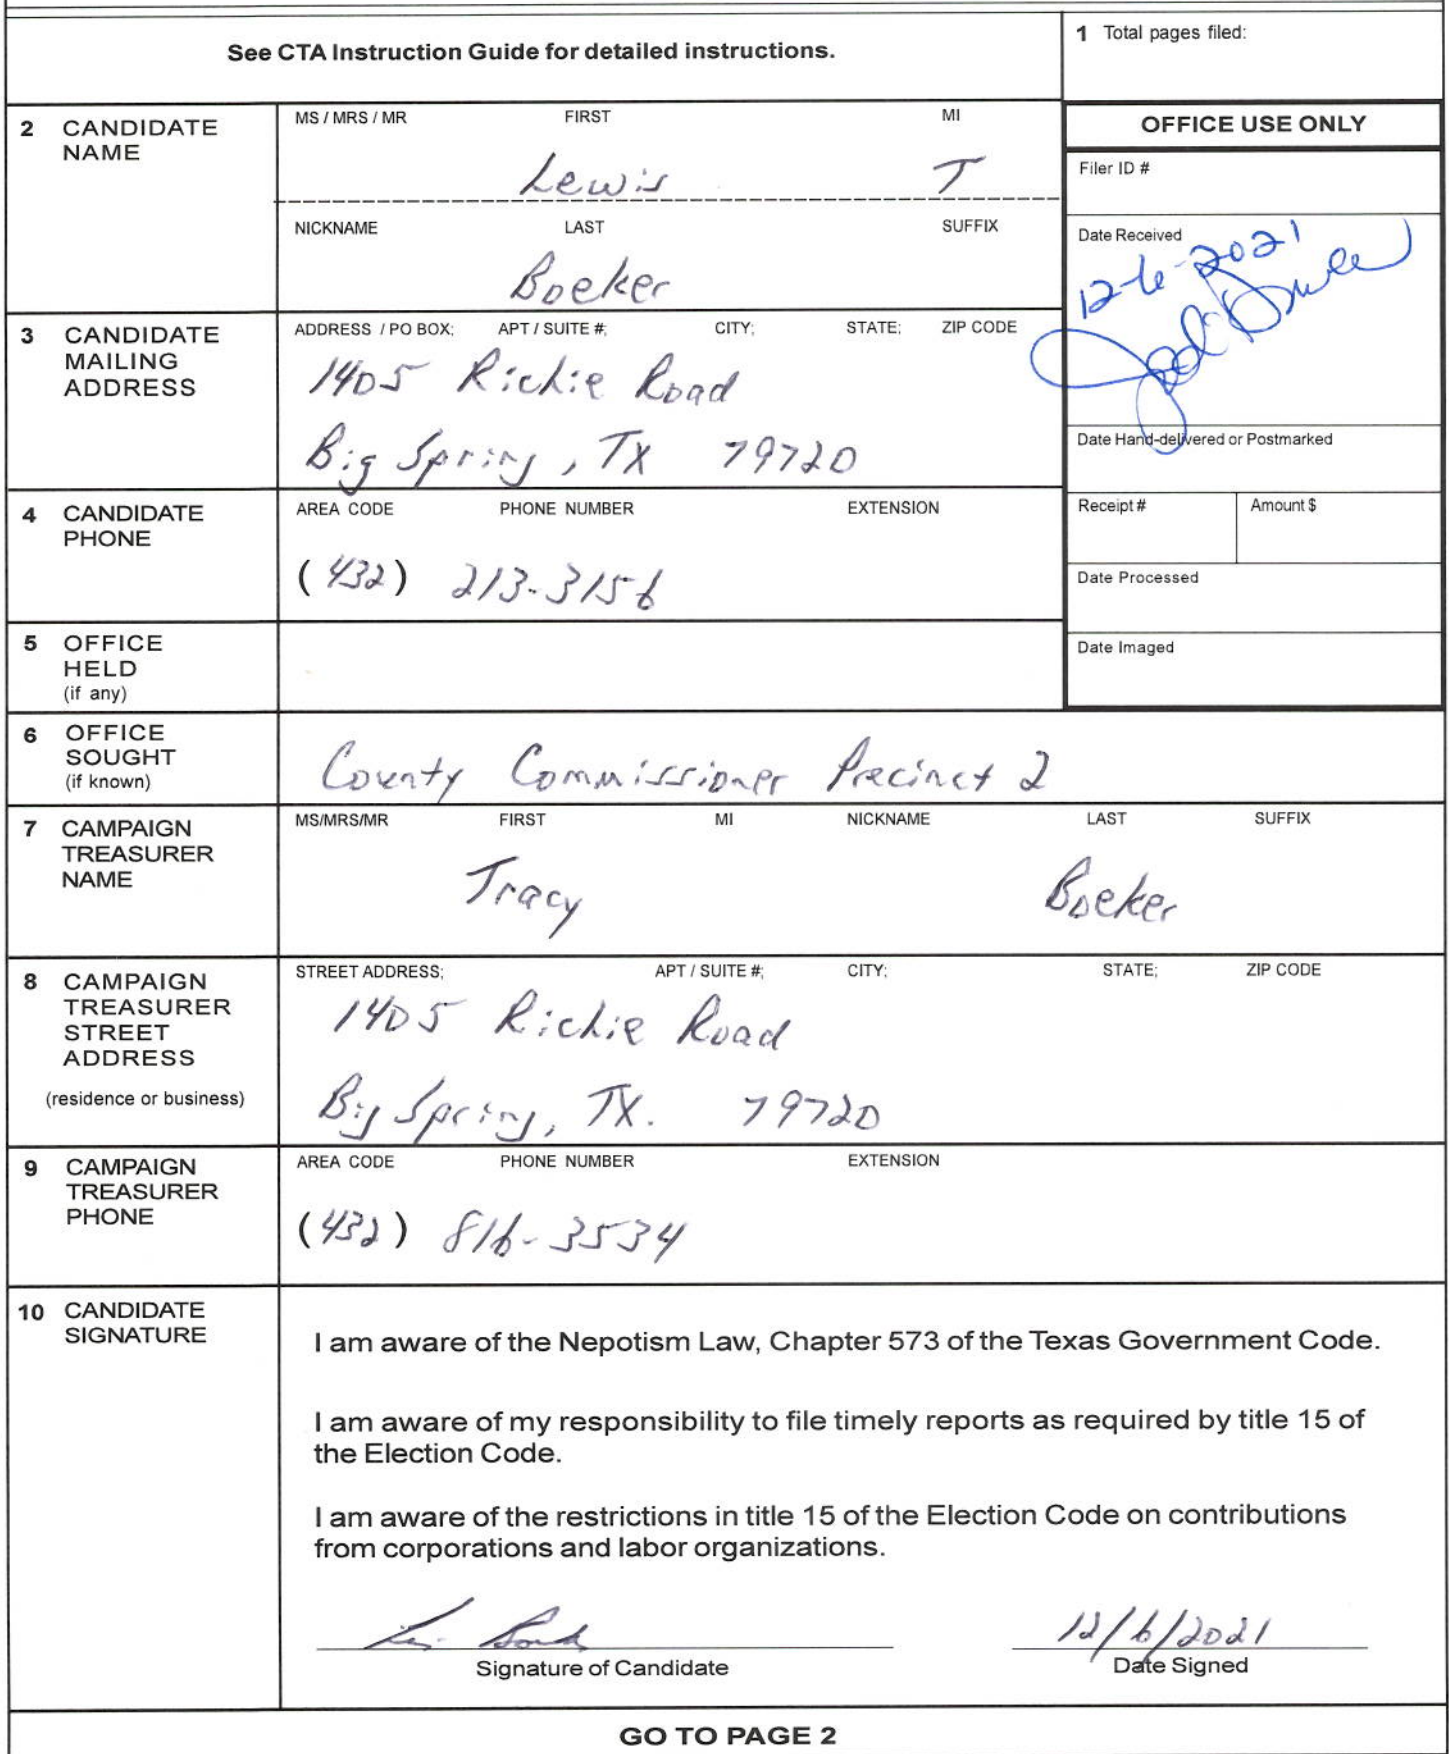 See CTA Instruction Guide for detailed instructions.
1 Total pages filed:
2 CANDIDATE NAME
MS / MRS / MR FIRST MI
Lewis T
NICKNAME LAST SUFFIX
Boeker
OFFICE USE ONLY
Filer ID #
Date Received
12-6-2021
Date Hand-delivered or Postmarked
Receipt # Amount $
Date Processed
Date Imaged
3 CANDIDATE MAILING ADDRESS
ADDRESS / PO BOX; APT / SUITE #; CITY; STATE; ZIP CODE
1405 Richie Road
Big Spring, TX 79720
4 CANDIDATE PHONE
AREA CODE PHONE NUMBER EXTENSION
(432) 213-3156
5 OFFICE HELD
(if any)
6 OFFICE SOUGHT
(if known)
County Commissioner Precinct 2
7 CAMPAIGN TREASURER NAME
MS/MRS/MR FIRST MI NICKNAME LAST SUFFIX
Tracy Boeker
8 CAMPAIGN TREASURER STREET ADDRESS
(residence or business)
STREET ADDRESS; APT / SUITE #; CITY; STATE; ZIP CODE
1405 Richie Road
Big Spring, TX. 79720
9 CAMPAIGN TREASURER PHONE
AREA CODE PHONE NUMBER EXTENSION
(432) 816-3534
10 CANDIDATE SIGNATURE
I am aware of the Nepotism Law, Chapter 573 of the Texas Government Code.
I am aware of my responsibility to file timely reports as required by title 15 of
the Election Code.
I am aware of the restrictions in title 15 of the Election Code on contributions
from corporations and labor organizations.
12/6/2021
Signature of Candidate Date Signed
GO TO PAGE 2